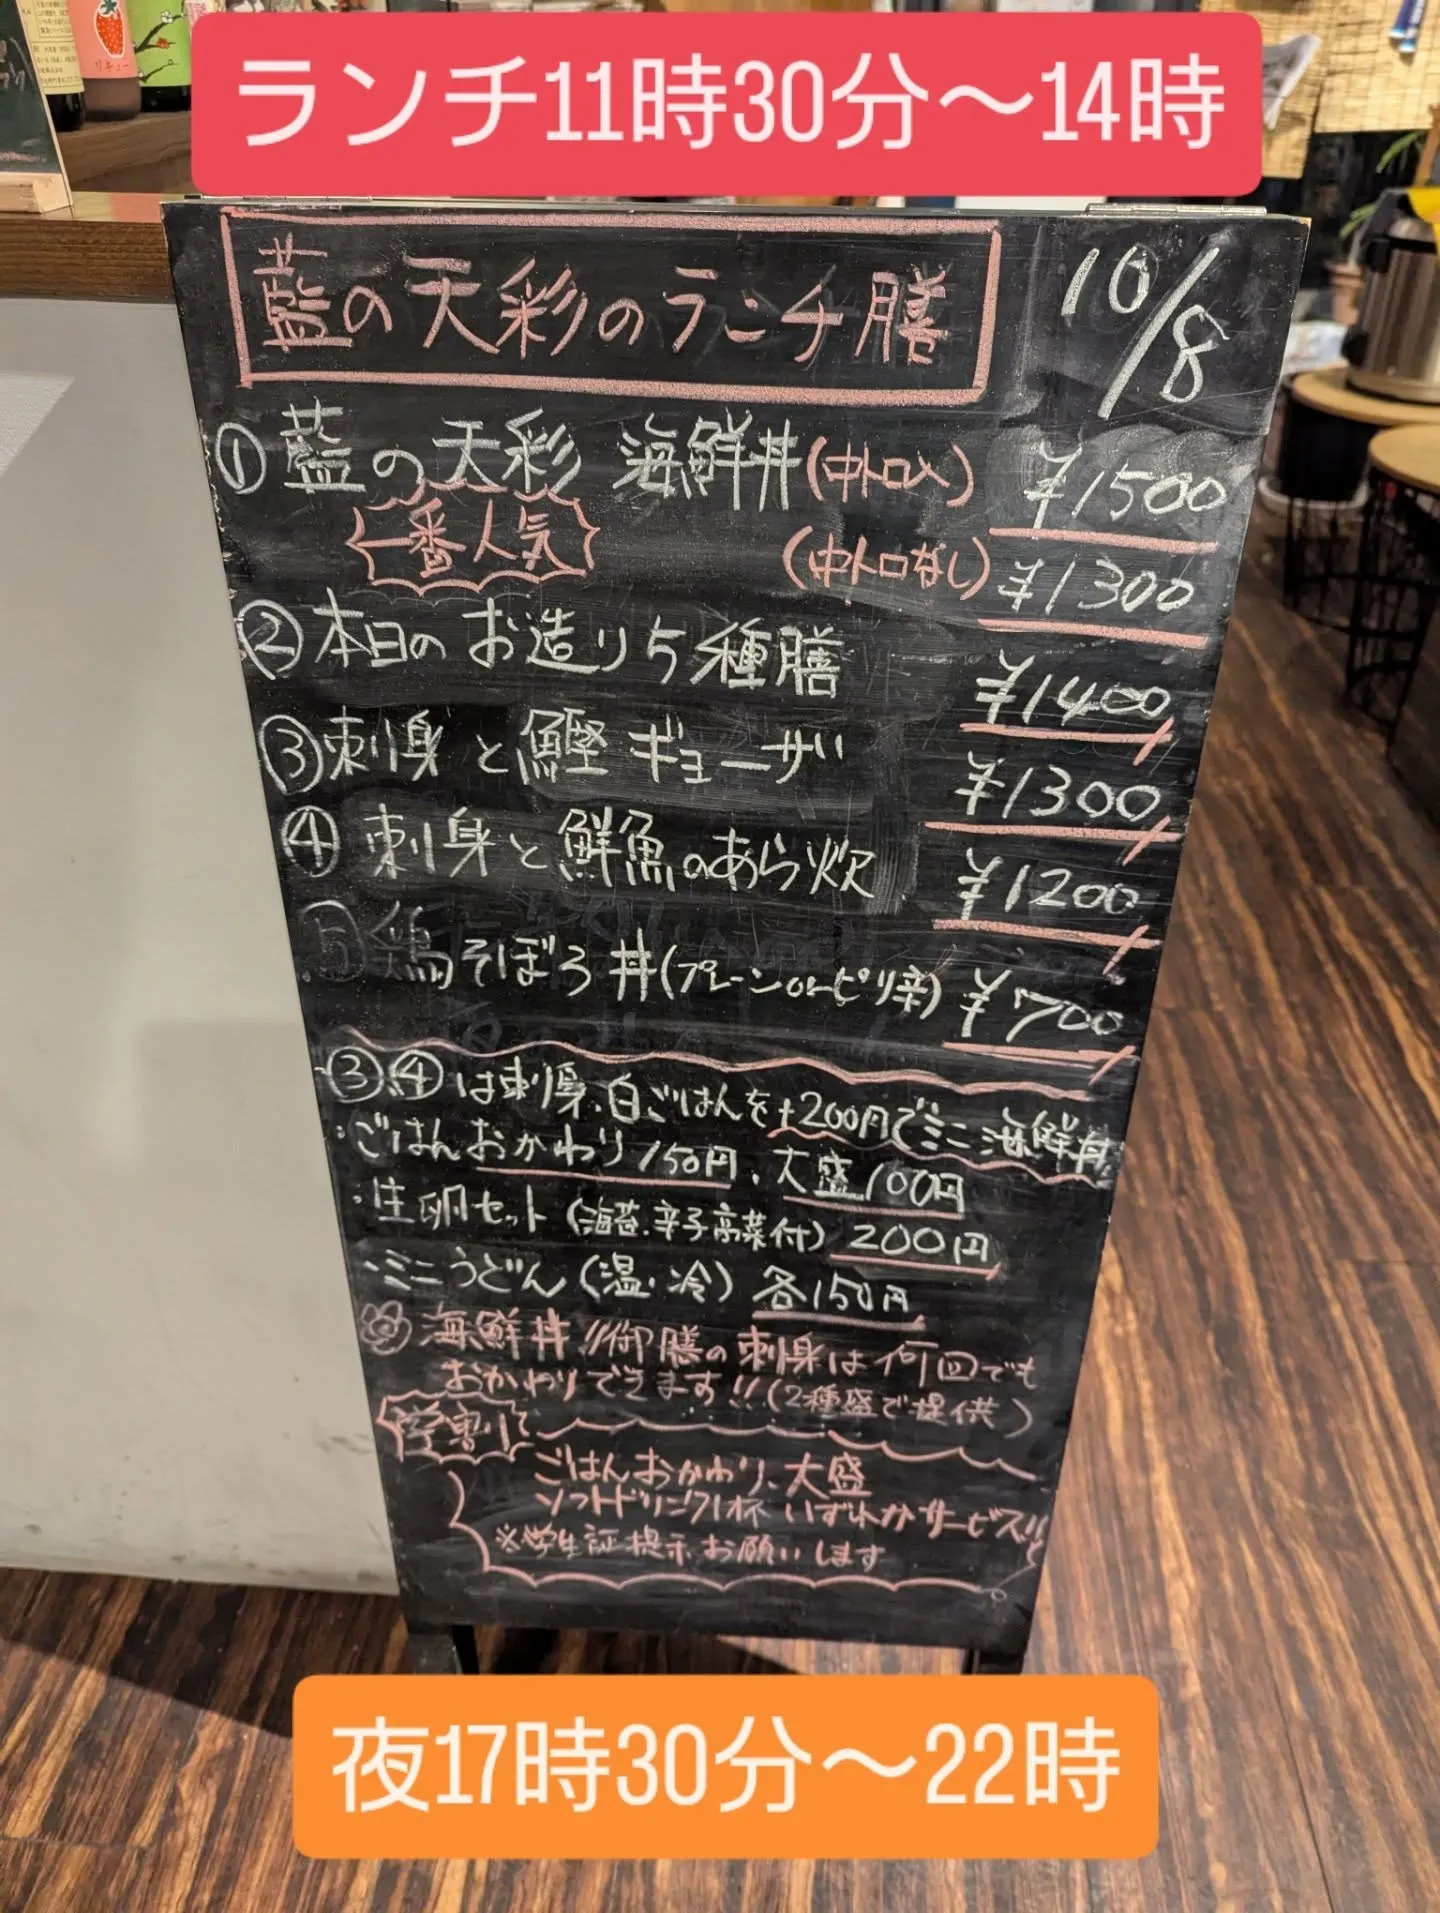 ランチ11時30分〜14時
藍の天彩のランチ膳
10/8
①藍の天彩 海鮮丼(中トロ入) ¥1500
一番人気 (中トロなし) ¥1300
②本日のお造り5種膳 ¥1400
③刺身と鰹ギョーザ ¥1300
④刺身と鮮魚のあら炊 ¥1200
⑤鶏そぼろ丼(プレーンorピリ辛) ¥700
③④は刺身、白ごはんを+200円でミニ海鮮丼
・ごはんおかわり150円、大盛100円
・生卵セット(海苔、辛子高菜付) 200円
・ミニうどん(温・冷) 各150円
海鮮丼、御膳の刺身は何回でも
おかわりできます!!(2種盛で提供)
学割
ごはんおかわり、大盛
ソフトドリンク1杯 いずれかサービス!!
※学生証提示お願いします
夜17時30分〜22時
リキュー